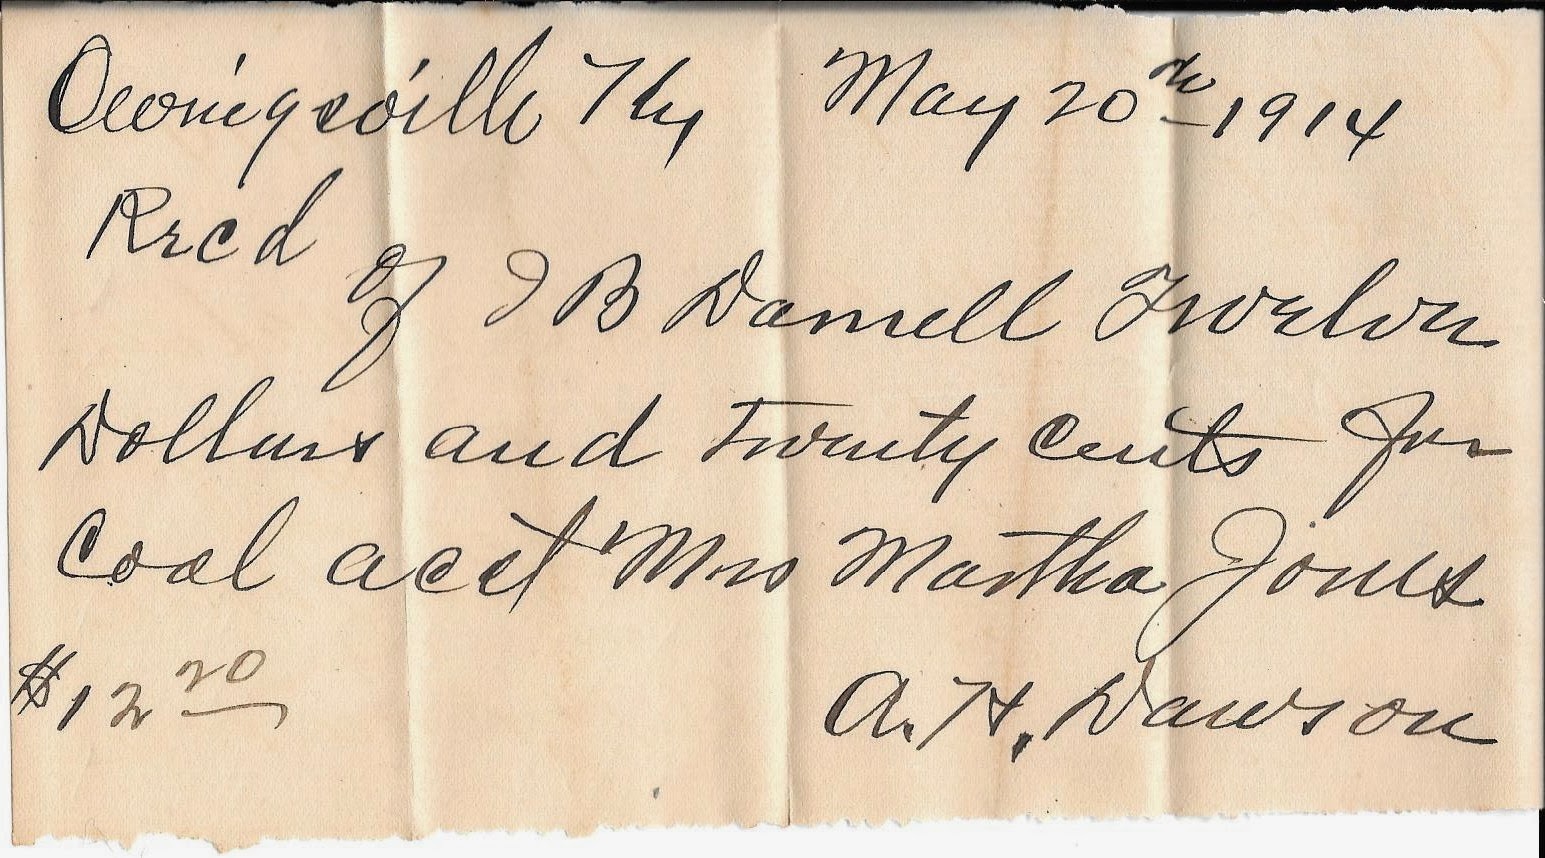 Owingsville Ky May 20th 1914
Recd
of J B Darnell Twelve
Dollars and Twenty Cents for
Coal acct Mrs Martha Jones
$12 20
A. H. Dawson